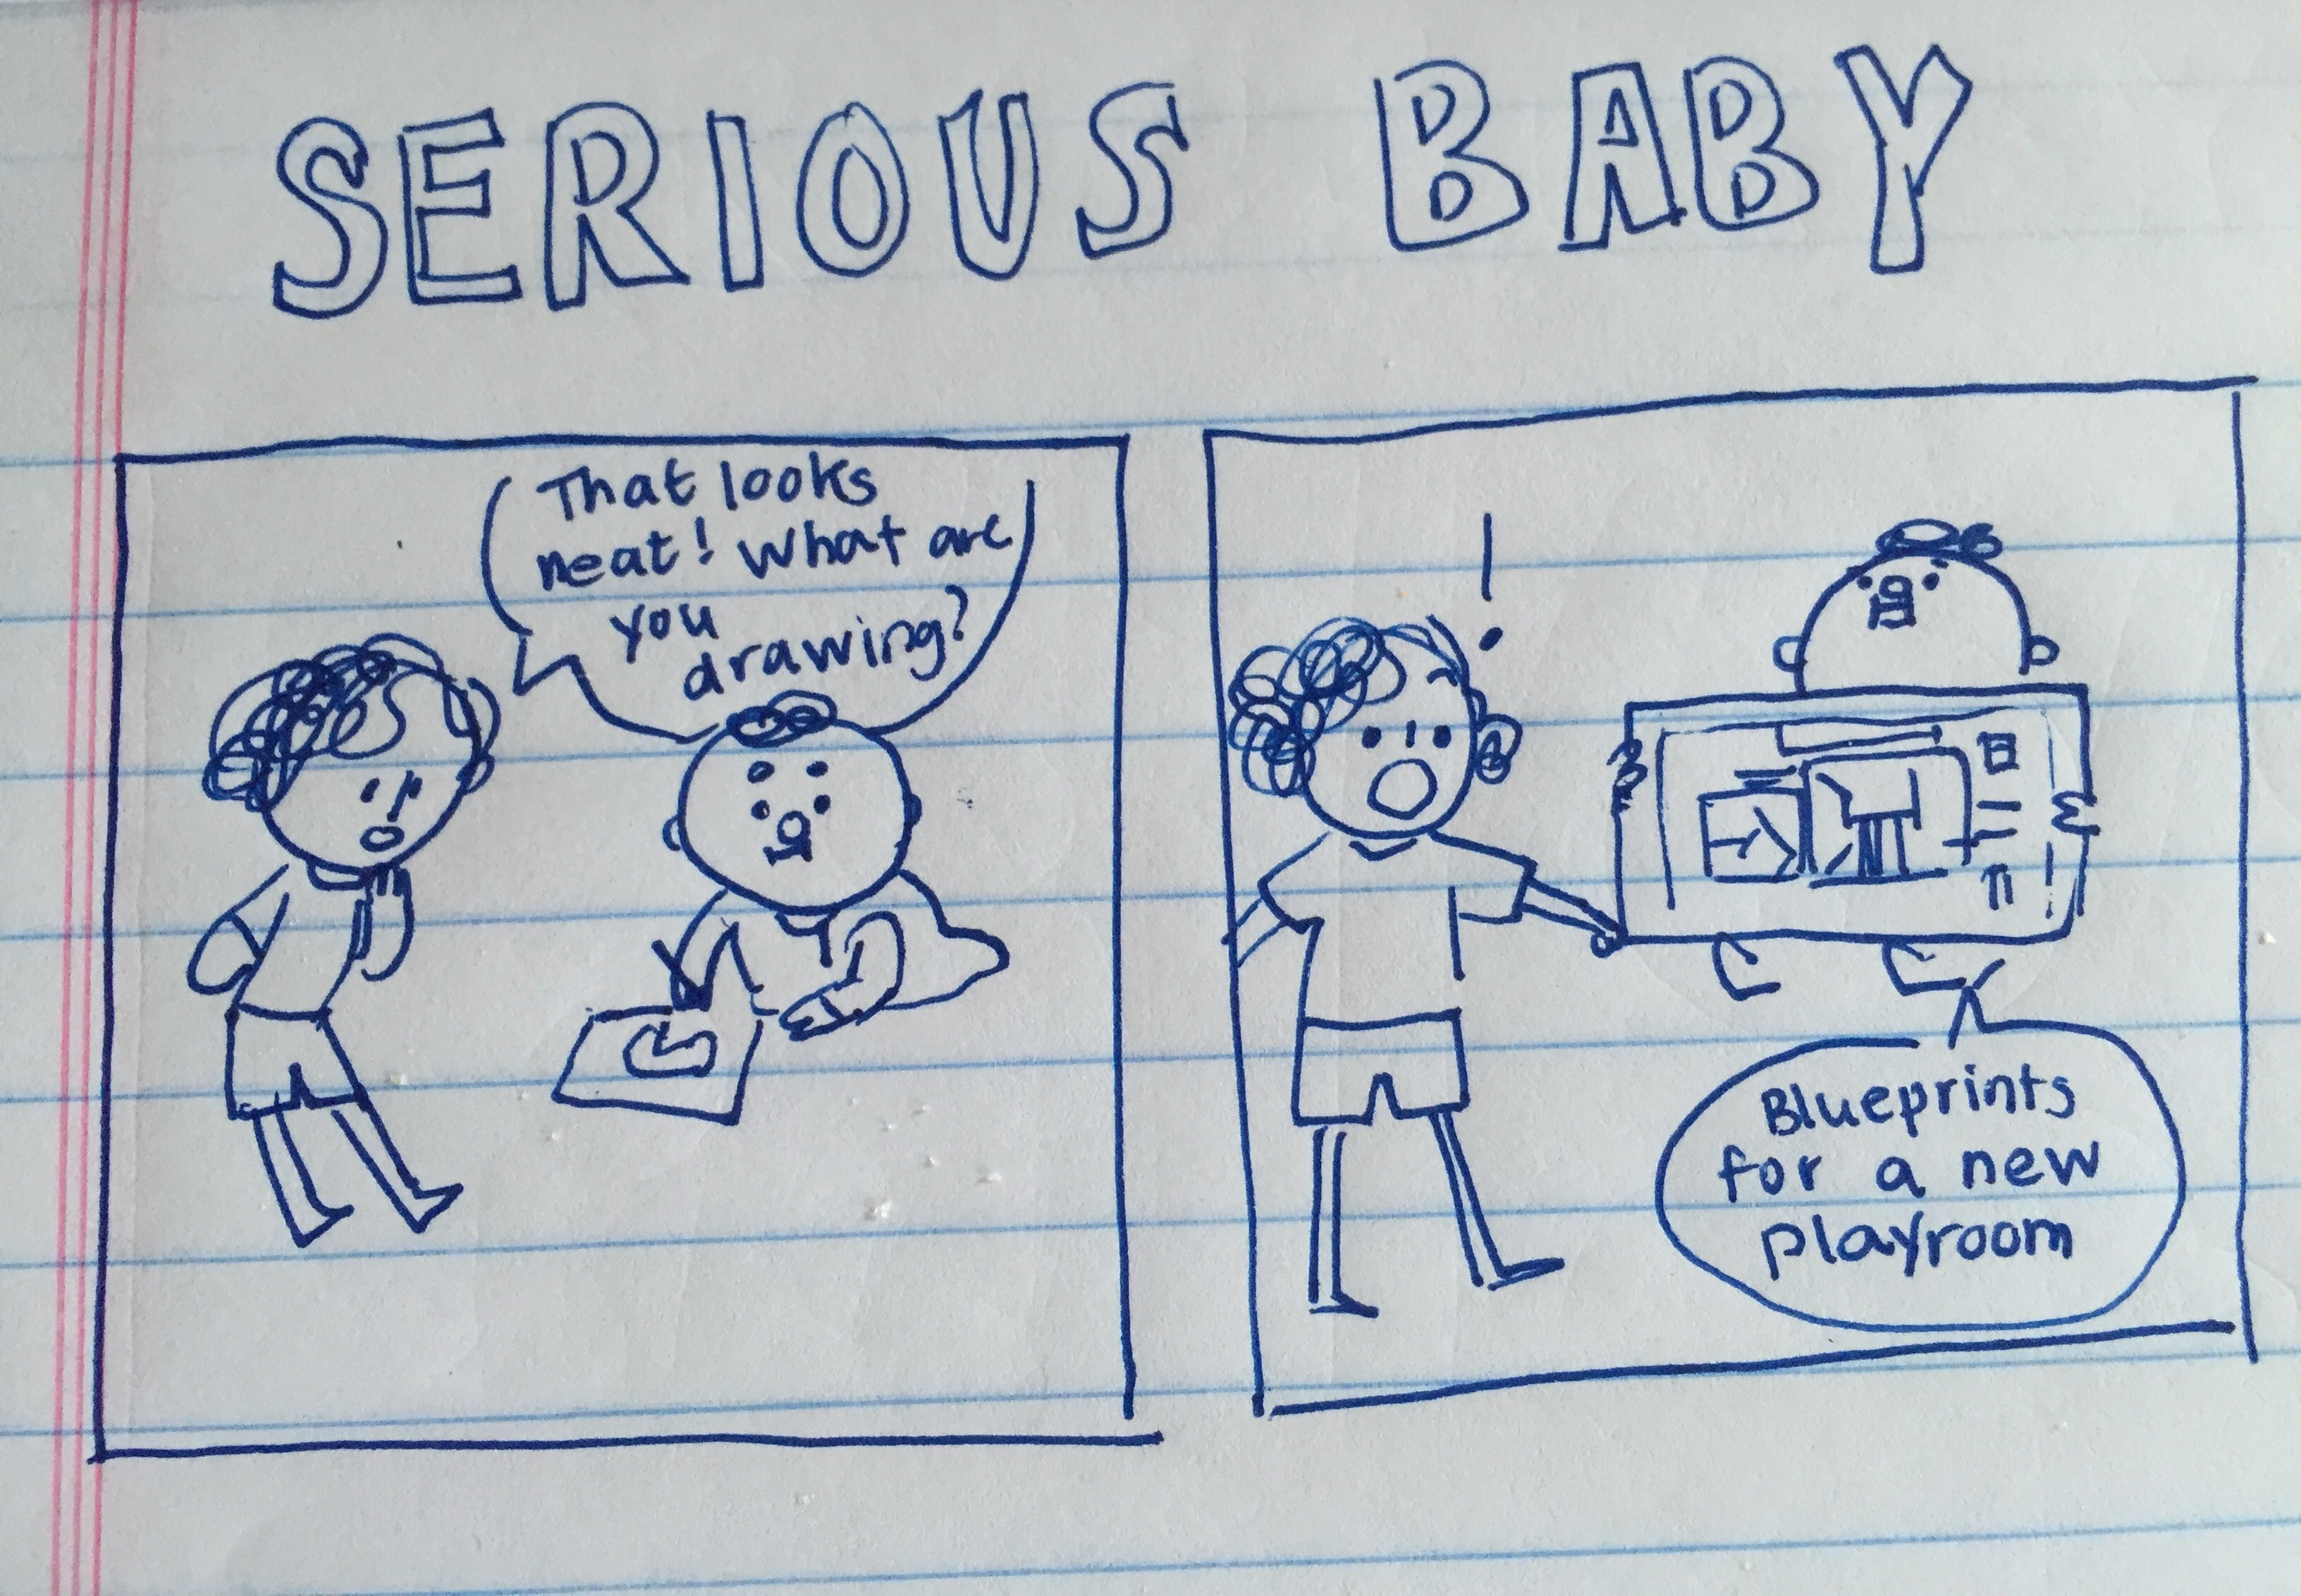 SERIOUS BABY
That looks
neat! What are
you
drawing?
!
Blueprints
for a new
playroom